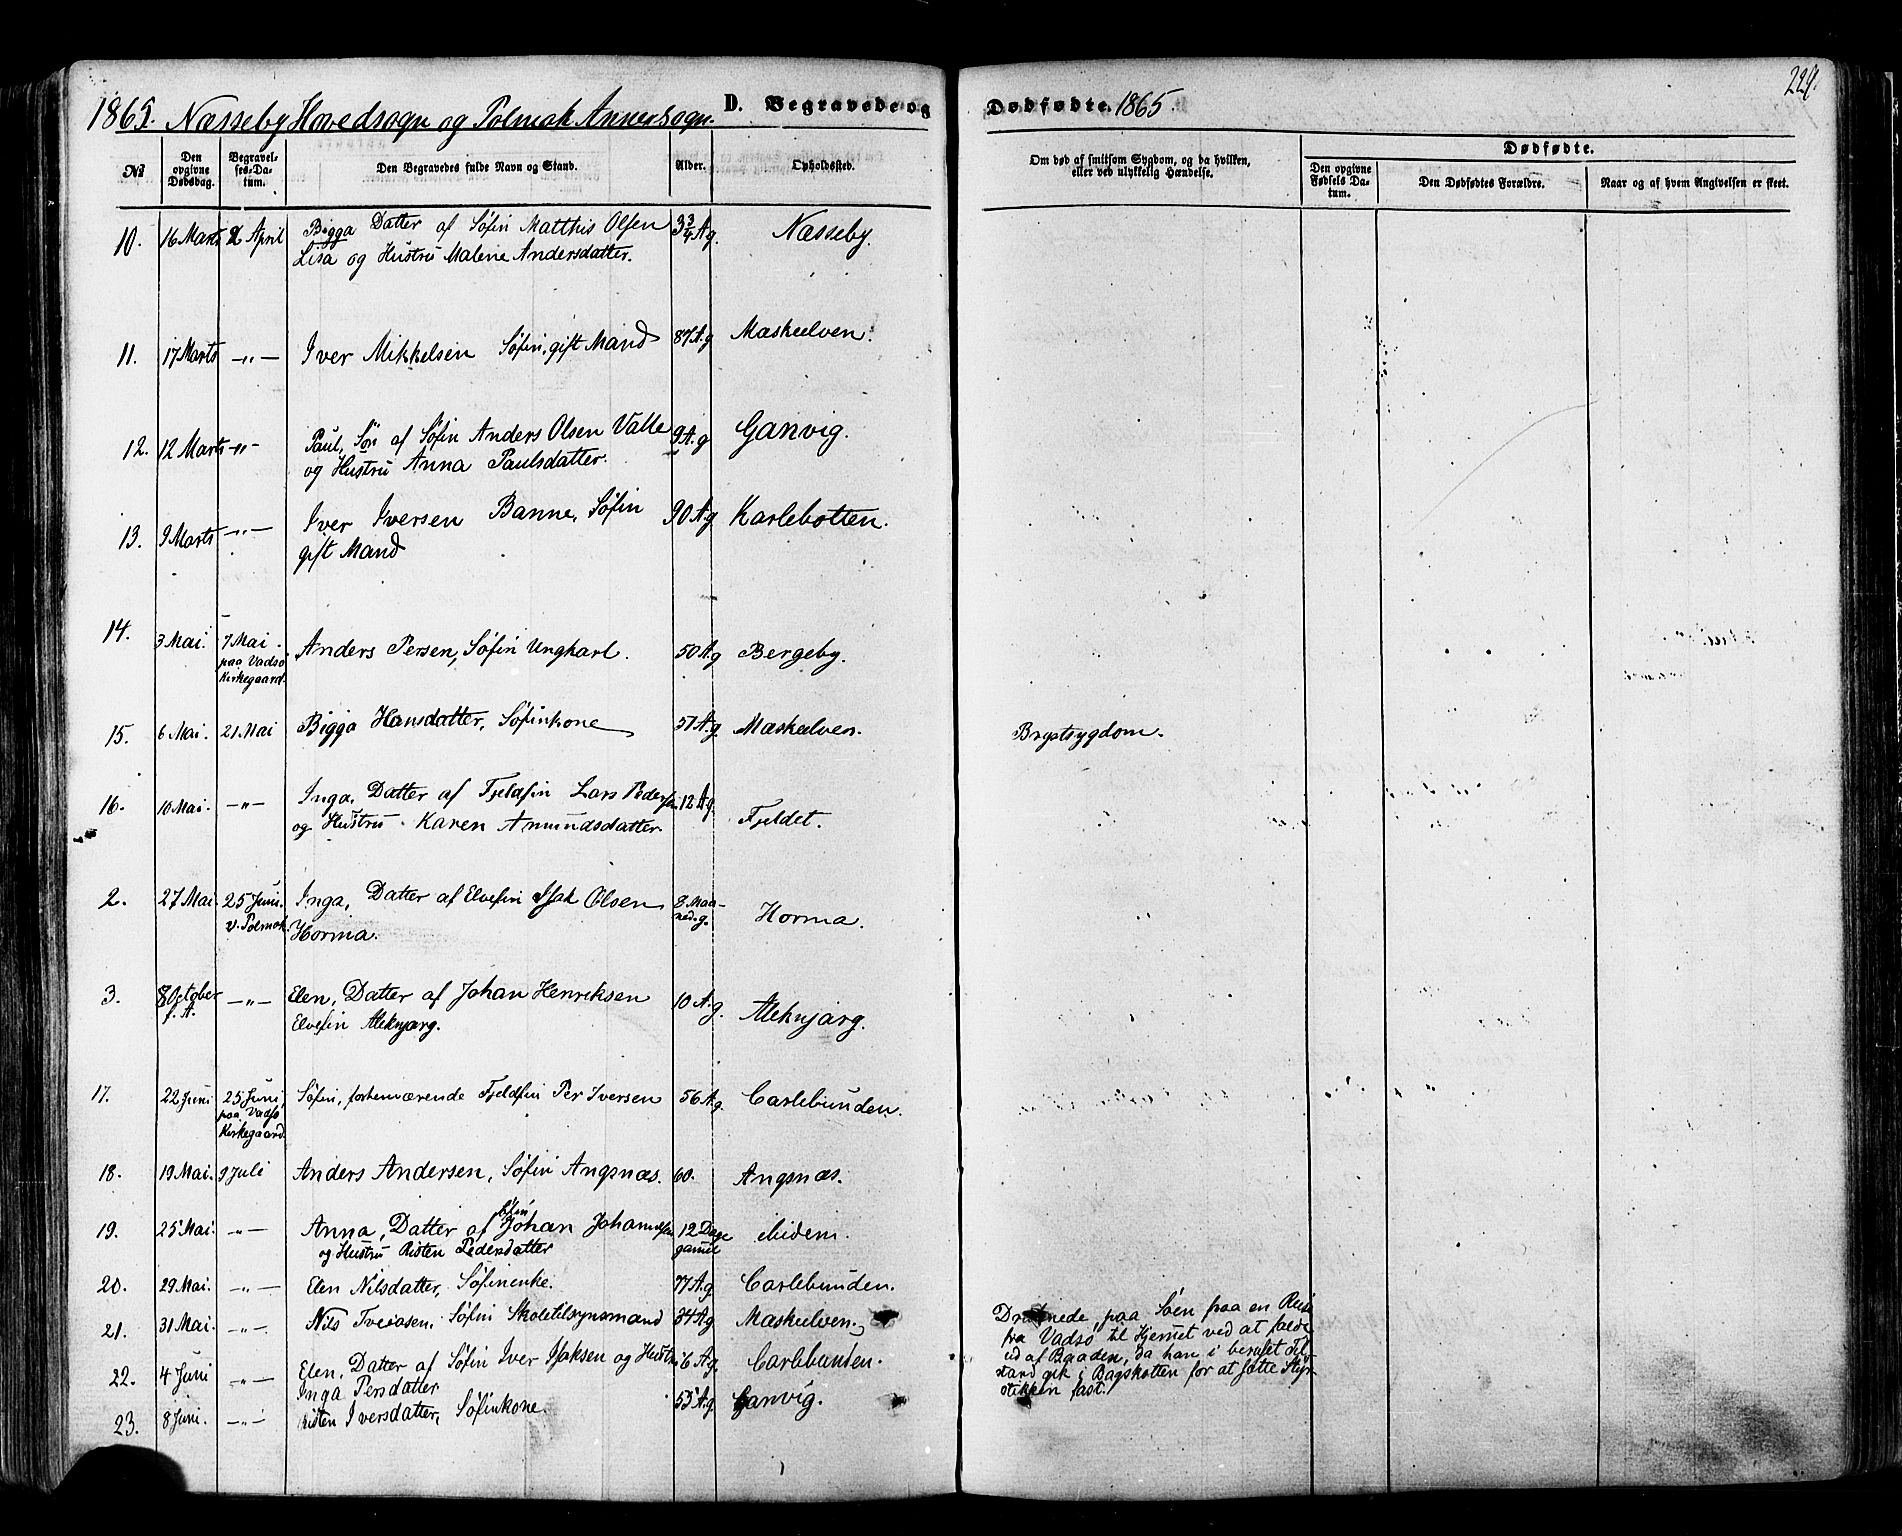 224.
1865. Næsseby Hovedsogn og Polmak Annexsogn.
D. Begravede og Dødfødte. 1865.
No
Den opgivne Dødsdag.
Begravelses-Datum.
Den Begravedes fulde Navn og Stand.
Alder.
Opholdssted.
Om død af smitsom Sygdom, og da hvilken, eller ved ulykkelig Hændelse.
Dødfødte.
Den opgivne Fødsels Datum.
Den Dødfødtes Forældre.
Naar og af hvem Angivelsen er skeet.
10. 16 Marts 2 April Bigga Datter af Søfin Matthis Olsen 3 3/4 A.g. Næsseby.
Lisa og Hustru Malene Andersdatter.
11. 17 Marts —„— Iver Mikkelsen Søfin, gift Mand 87 A.g Maskelven.
12. 12 Marts —„— Paul, Søn af Søfin Anders Olsen Valle 9 A.g Ganvig.
og Hustru Anna Paulsdatter.
13. 9 Marts —„— Iver Iversen Banne, Søfin 90 A.g Karlebotten.
gift Mand
14. 3 Mai. 7 Mai Anders Persen, Søfin Ungkarl. 50 A.g Bergeby.
paa Vadsø
Kirkegaard.
15. 6 Mai. 21 Mai Bigga Hansdatter, Søfinkone 57 A.g. Maskelven. Brystsygdom.
16. 10 Mai. —„— Inga, Datter af Fjeldfin Lars Pedersen 12 A.g. Fjeldet.
og Hustru Karen Amundsdatter.
2. 27 Mai. 25 Juni. Inga, Datter af Elvefin Isak Olsen 8 Maaned. g. Horma.
v. Polmak. Horma.
3. 8 October —„— Elen, Datter af Johan Henriksen 10 A.g. Aleknjarg.
f. A. Elvefin Aleknjarg.
17. 22 Juni 25 Juni, Søfin, forhenværende Fjeldfin Per Iversen 56 A.g. Carlebunden.
paa Vadsø
Kirkegaard.
18. 19 Mai. 9 Juli Anders Andersen, Søfin Angsnæs. 60. Angsnæs.
19. 25 Mai. —„— Anna, Datter af Søfin Johan Johannesen 12 Dage gammel
og Hustru Risten Pedersdatter
20. 29 Mai. —„— Elen Nilsdatter, Søfinenke. 77 A.g. Carlebunden.
21. 31 Mai. —„— Nils Søfin Skoletilsynsmand 34 A.g Maskelven.
Druknede, paa Søen paa en Reise
fra Vadsø til Hjemet ved at falde
ud af Baaden, da han i beruset Til-
stand gik i Bagskotten for at sætte Styr-
stikken fast.
22. 4 Juni —„— Elen, Datter af Søfin Iver Isaksen og Hustru 6 A.g. Carlebunden.
Inga Persdatter
23. 8 Juni. —„— Risten Iversdatter, Søfinkone. 55 A.g. Ganvig.